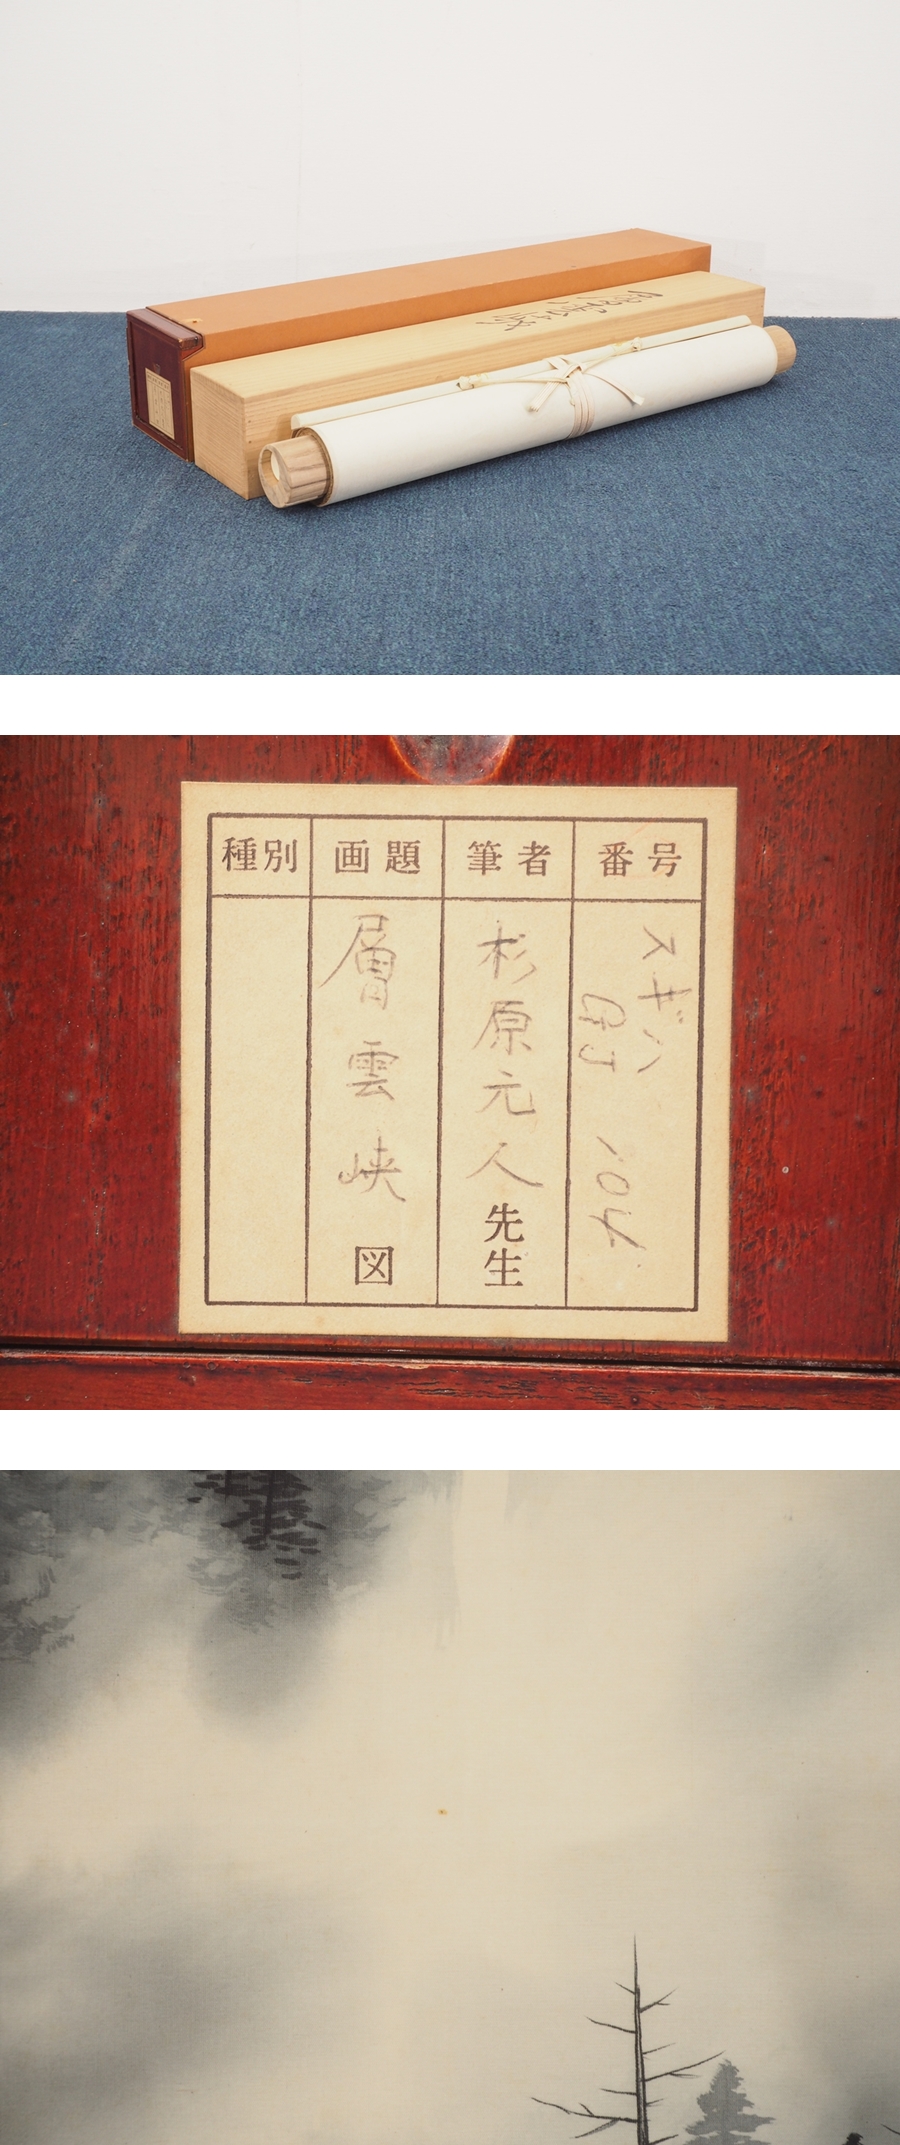 層雲峡
番号
スギハ
GJ 104
筆者
杉原元人先生
画題
層雲峡図
種別